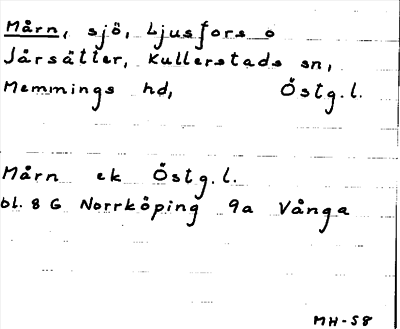 Mårn, sjö, Ljusfors o
Jårsätter, Kullerstads sn,
Memmings hd, Östg.l.
Mårn ek Östg.l.
bl. 8 G Norrköping 9a Vånga
MH-58